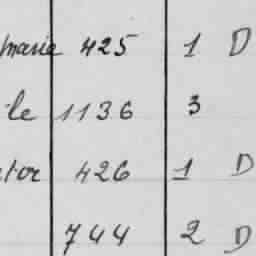 marie 425 1 D
le 1136 3
ator 426 1 D
744 2 D